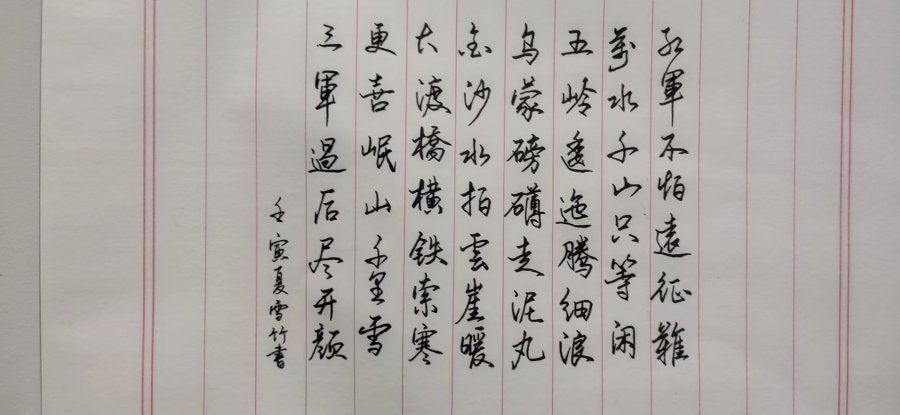 红軍不怕遠征難
萬水千山只等闲
五岭逶迤腾细浪
乌蒙磅礴走泥丸
金沙水拍雲崖暖
大渡橋横铁索寒
更喜岷山千里雪
三軍過后尽开颜
壬寅夏雪竹書